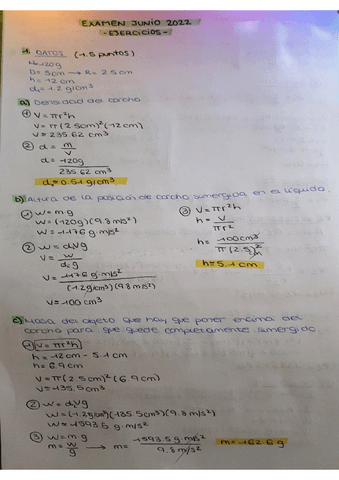 EXAMEN JUNIO 2022
- EJERCICIOS -
1. DATOS (1.5 puntos)
M=120g
D=5cm → R=2.5cm
h=12cm
dₗ=1.2g/cm³
a) Densidad del corcho
① V=πr²h
V=π(2.5cm)²(12cm)
V=235.62 cm³
② d= m/V
d= 120g/235.62 cm³
d=0.51g/cm³
b) Altura de la posición de corcho sumergida en el líquido.
① W=mg
W=(120g)(9.8 m/s²)
W=1176 g·m/s²
② W=dₗVg
V= W/dₗg
V= 1176 g·m/s²/(1.2g/cm³)(9.8 m/s²)
V=100 cm³
③ V=πr²h
h= V/πr²
h= 100cm³/π(2.5)²
h=5.1cm
c) Masa del objeto que hay que poner encima del
corcho para que quede completamente sumergido.
① V=πr²h
h=12cm-5.1cm
h=6.9cm
V=π(2.5cm)²(6.9cm)
V=135.5cm³
② W=dₗVg
W=(1.2g/cm³)(135.5cm³)(9.8 m/s²)
W=1593.5 g·m/s²
③ W=mg
m= W/g → m= 1593.5 g·m/s²/9.8 m/s² m=162.6g